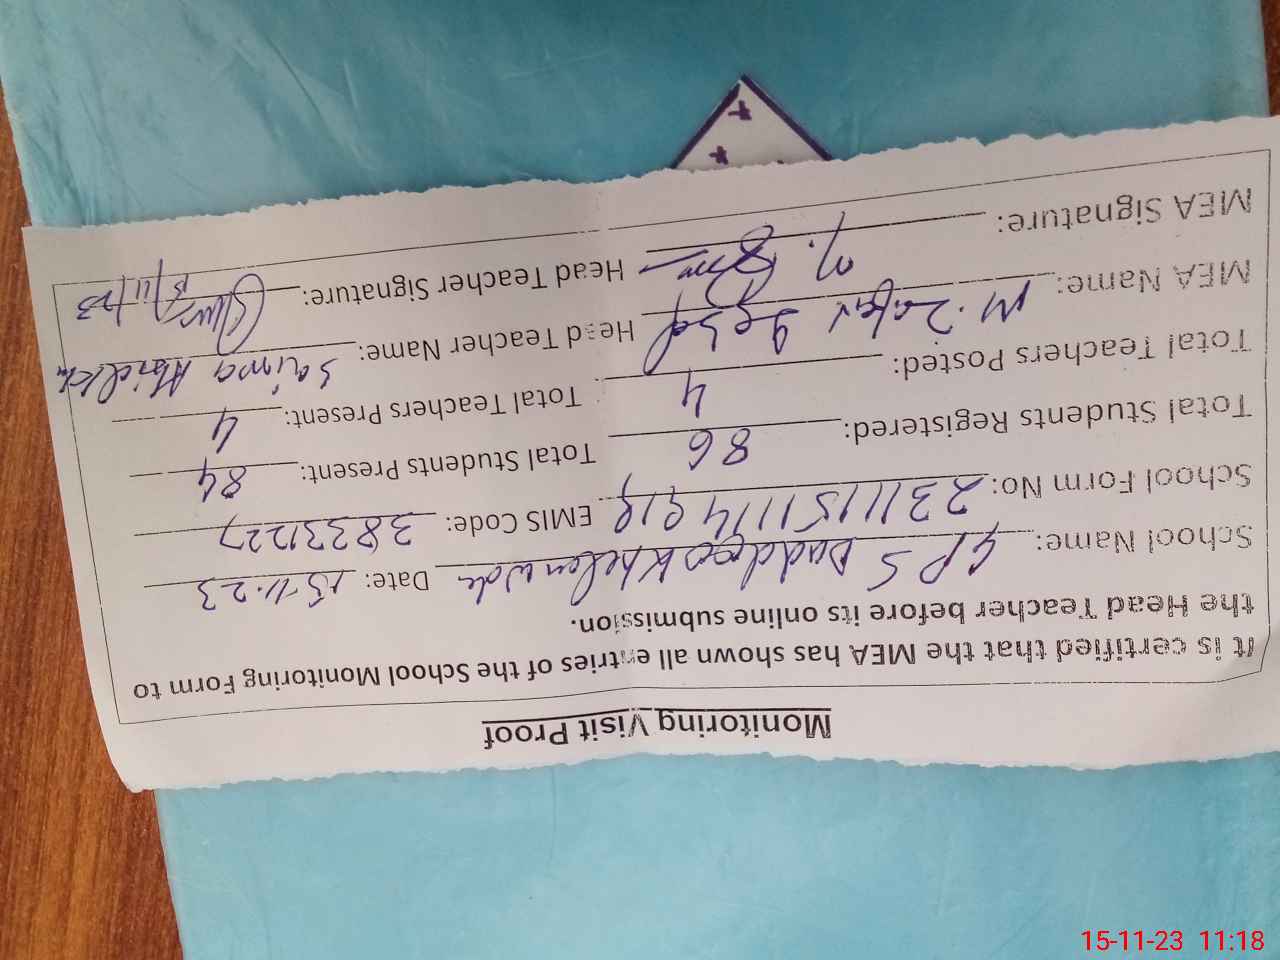 Monitoring Visit Proof
It is certified that the MEA has shown all entries of the School Monitoring Form to
the Head Teacher before its online submission.
School Name: GPS Date: 15-11-23
School Form No: EMIS Code: 38331227
Total Students Registered: 86 Total Students Present: 84
Total Teachers Posted: 4 Total Teachers Present: 4
MEA Name: M. Zafar Iqbal Head Teacher Name: Saima
MEA Signature: Head Teacher Signature:
15/11/23
15-11-23 11:18